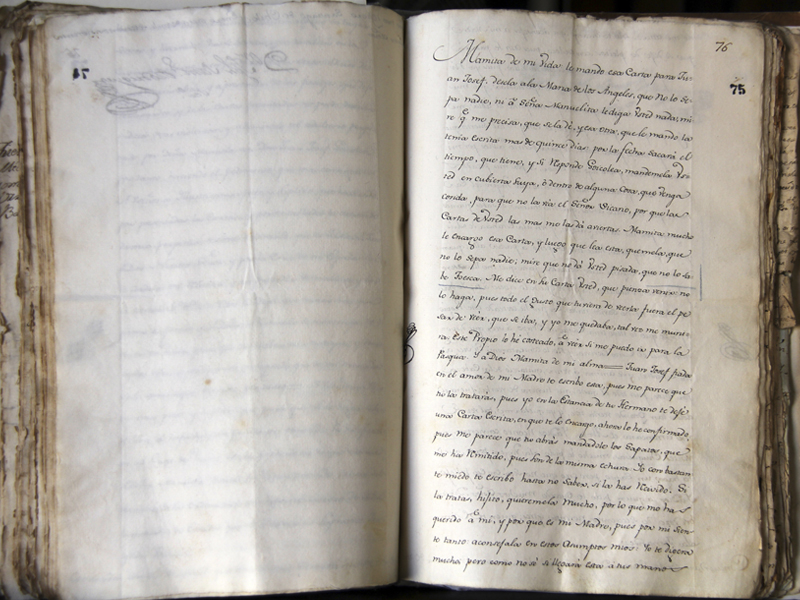 76
75
Mamita de mi Vida le mando esa Carta para Ju-
an Josef. desela a la Maria de los Angeles, que no lo se-
pa nadie, ni â Señâ Manuelita le diga Vsted nada; mi-
re q.e me precisa, que se la dê, y esa otra, que le mando la
tenia escrita mas de quince dias por la fecha sacarâ el
tiempo, que tiene, y si Responde Goicolea, mandemela Vs-
ted en cubierta suya, ô dentro de alguna Cosa, que venga
cosida, para que no la vea el Señor Vicario, por que las
Cartas de Vsted las mas me las dâ aviertas. Mamita mucho
le encargo esa Carta, y luego que lea esta, quemela, que
no lo sepa nadie; mire que no dê Vsted pisada, que no lo sa-
be Toesca. Me dice en su Carta Vsted, que piensa venir: no
lo haga, pues todo el Gusto que tuviera de verla fuera el pe-
sar de veer, que se iba, y yo me quedaba, tal vez me murie-
ra. Este Propio lo hê costeado, â veer si me puedo ir para la
Pasqua. Y a Dios Mamita de mi alma Juan Josef fiada
en el amor de mi Madre te escribo esta, pues me parece que
tu la tratarâs, pues yo en la Estancia de tu Hermano te dejê
una Carta Escrita, en que te lo encargo, ahora lo he confirmado
pues me parece que tu abrâs mandadole los Sapatos, que
me ha Remitido, pues son de la misma echura. Yo con bastan-
te miedo te escribo hasta no saber, si la has Revido. Si
la tratas, hijito, quieremela mucho, por lo que me ha
querido â mî, y por que es mi Madre, pues por mi sien-
te tanto aconsejala en estos Asumptos mios. Yo te dixera
mucho, pero como no sê si llegarâ esta a tus manos